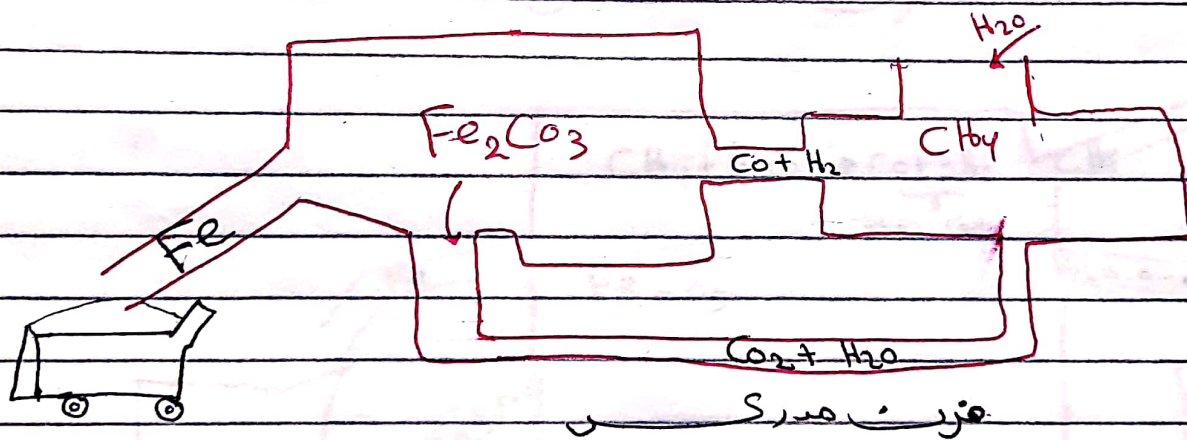 H2O
Fe2Co3
CH4
Co + H2
Fe
Co2 + H2O
فرن مدركس